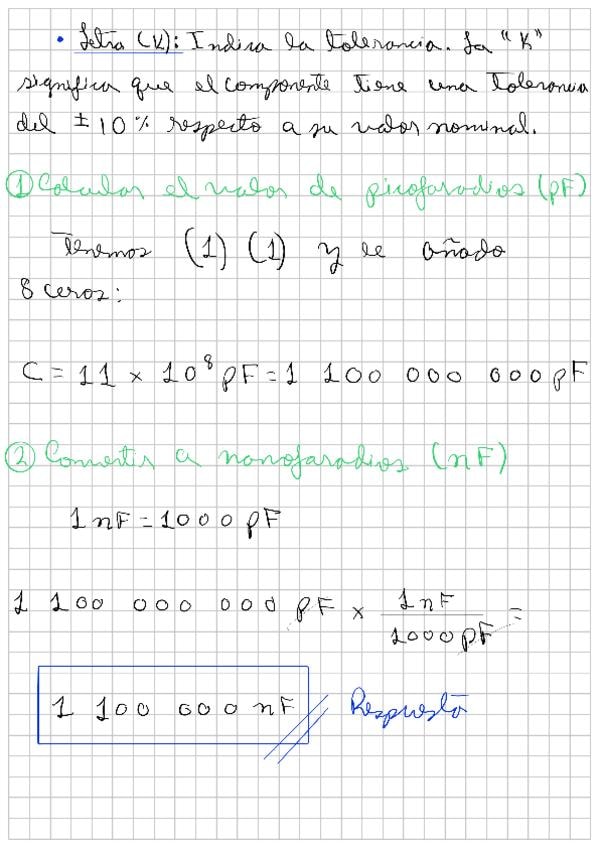 • Letra (K): Indica la tolerancia. La "K"
significa que el componente tiene una Tolerancia
del ± 10 % respecto a su valor nominal.
① Calcular el valor de picofaradios (pF)
Tenemos (1) (1) y le añado
8 ceros:
C = 11 × 10⁸ pF = 1 100 000 000 pF
② Convertir a nanofaradios (nF)
1 nF = 1000 pF
1 100 000 000 pF × 1 nF / 1000 pF =
1 100 000 nF Respuesta